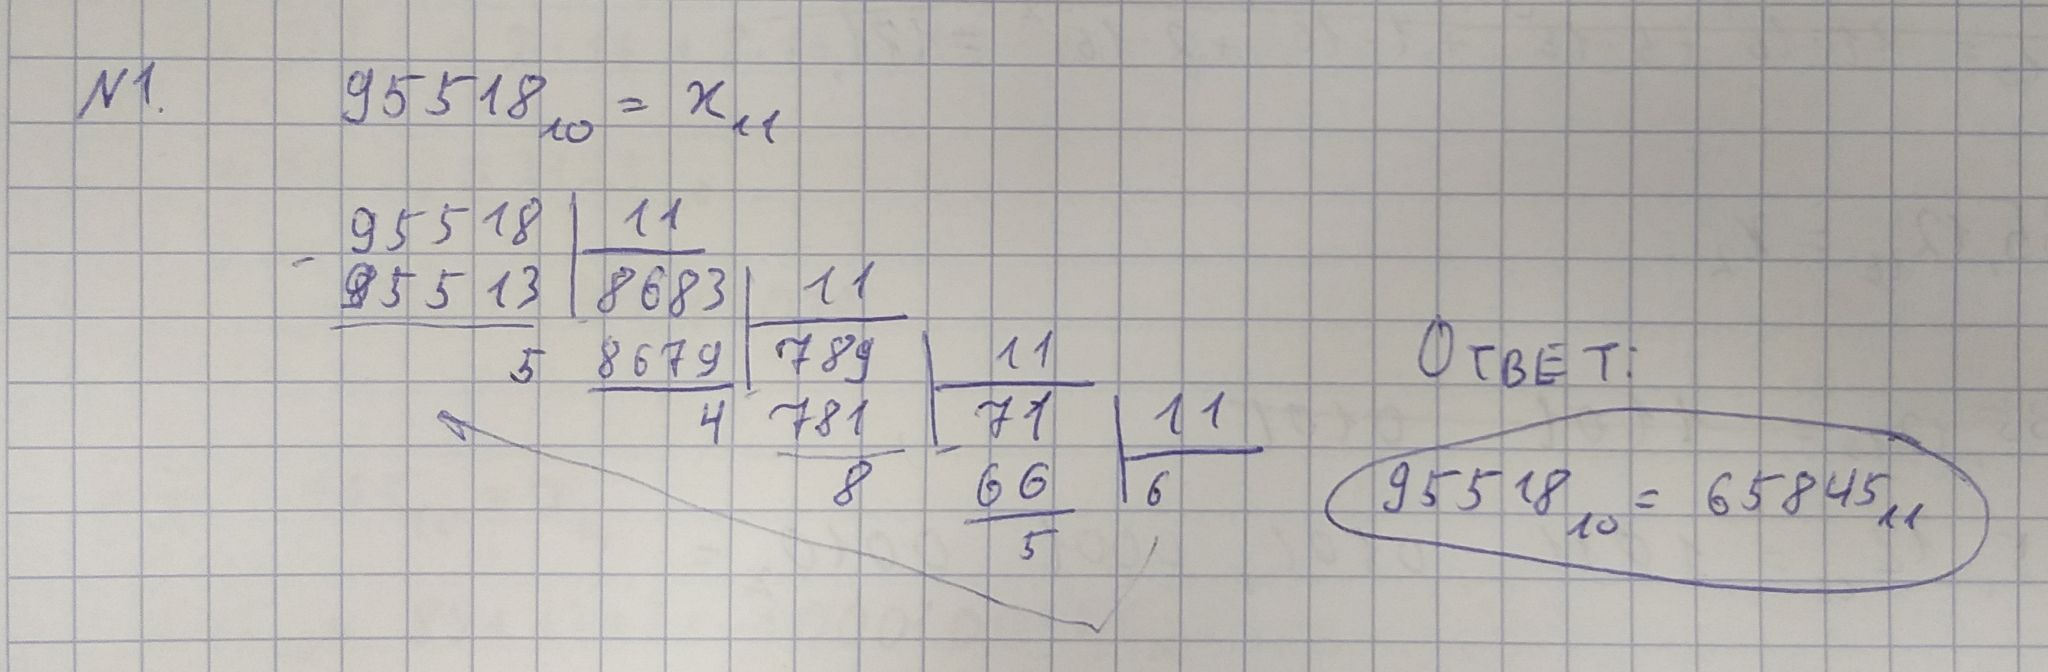 N1. 95518₁₀ = x₁₁
95518 | 11
- 95513 | 8683 | 11
5 8679 | 789 | 11
4 781 | 71 | 11
8 66 | 6
5
Ответ:
95518₁₀ = 65845₁₁